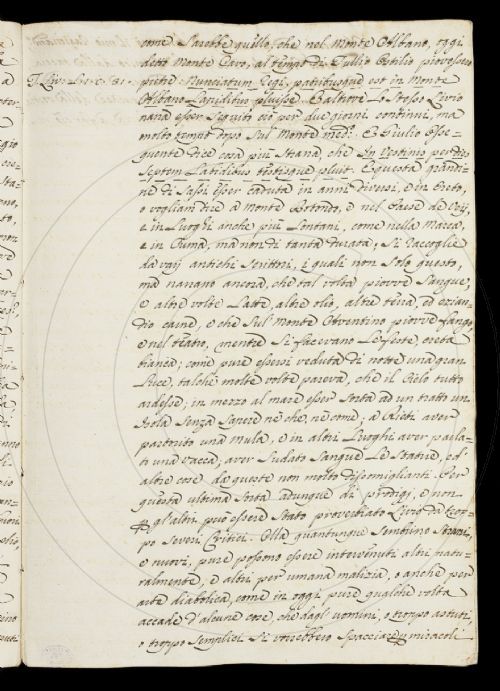 come sarebbe quello, che nel Monte Albano, oggi
detto Monte Cavo, al tempo di Tullio Ostilio piovessero
T. Liv: Lib: C: 31. pietre Nunciatum Regi, patribusque est in Monte
Albano Lapidibus pluisse. E altrove lo stesso Livio
narra esser seguito ciò per due giorni continui, ma
molto tempo dopo sul Monte med.º E Giulio Osse-
quente dice cosa più strana, che In Vestinis per dies
septem Lapidibus pluit. E questa grandi-
ne di sassi esser caduta in anni diversi, e in Ereto,
o vogliam dire a Monte Rotondo, e nel Paese de Veij,
e in luoghi anche più lontani, come nella Marca,
e in Cuma, ma non di tanta durata, si raccoglie
da varj antichi scrittori, i quali non solo questo,
ma narrano ancora, che tal volta piovve sangue,
e altre volte latte, altre olio, altre terra, ed ezian-
dio carne, e che sul Monte Aventino piovve fango,
e nel teatro, mentre si facevano le feste, creta
bianca; come pure essersi veduta di notte una gran
luce, talche molte volte pareva, che il Cielo tutto
ardesse; in mezzo al mare esser sorta ad un tratto un
Isola senza sapere nè che, nè come; a Rieti aver
partorito una mula, e in altri luoghi aver parla-
to una vacca; aver sudato sangue le statue, ed
altre cose da queste non molto dissomiglianti. Per
questa ultima sorta adunque di prodigj, e non
per gl'altri può essere stato proverbiato Livio da trop-
po severi Critici. Ma quantunque sembrino strani,
e nuovi, pure possono essere intervenuti altri natu-
ralmente, e altri per umana malizia, o anche per
arte diabolica, come in oggi pure qualche volta
accade d'alcune cose, che dagl'uomini, o troppo astuti,
o troppo semplici si vorrebbero spacciare per miracoli